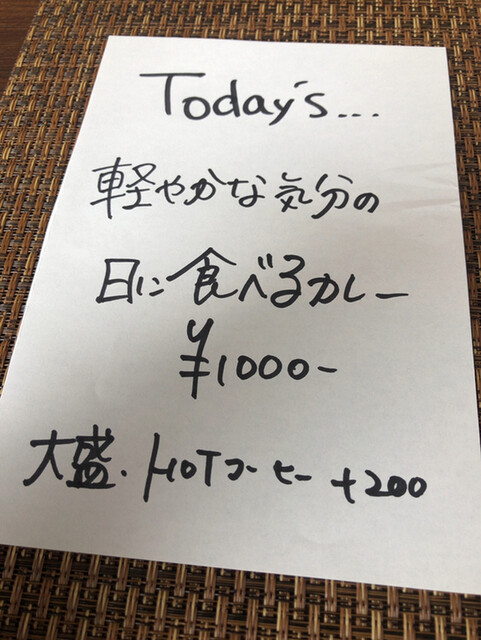 Today's...
軽やかな気分の
日に食べるカレー
¥1000-
大盛.HOTコーヒー +200